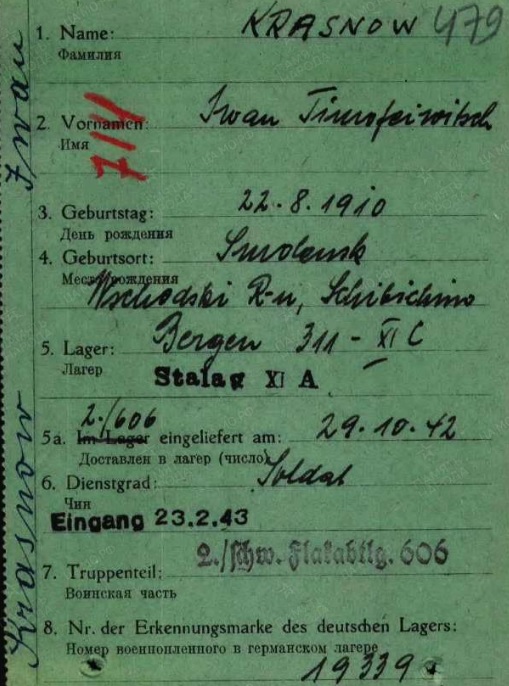 479
1. Name: KRASNOW
Фамилия
2. Vornamen: Iwan Timofeiwitsch
Имя
711
3. Geburtstag: 22.8.1910
День рождения
4. Geburtsort: Smolensk
Место рождения
Wschodski R-n, Schibichino
5. Lager: Bergen 311 - XI C
Лагер
Stalag XI A
2./606
5a. Im Lager eingeliefert am: 29.10.42
Доставлен в лагер (число)
6. Dienstgrad: Soldat
Чин
Eingang 23.2.43
2./schw. Flakabtlg. 606
7. Truppenteil:
Воинская часть
8. Nr. der Erkennungsmarke des deutschen Lagers:
Номер военнопленного в германском лагере
19339
Krasnow Iwan